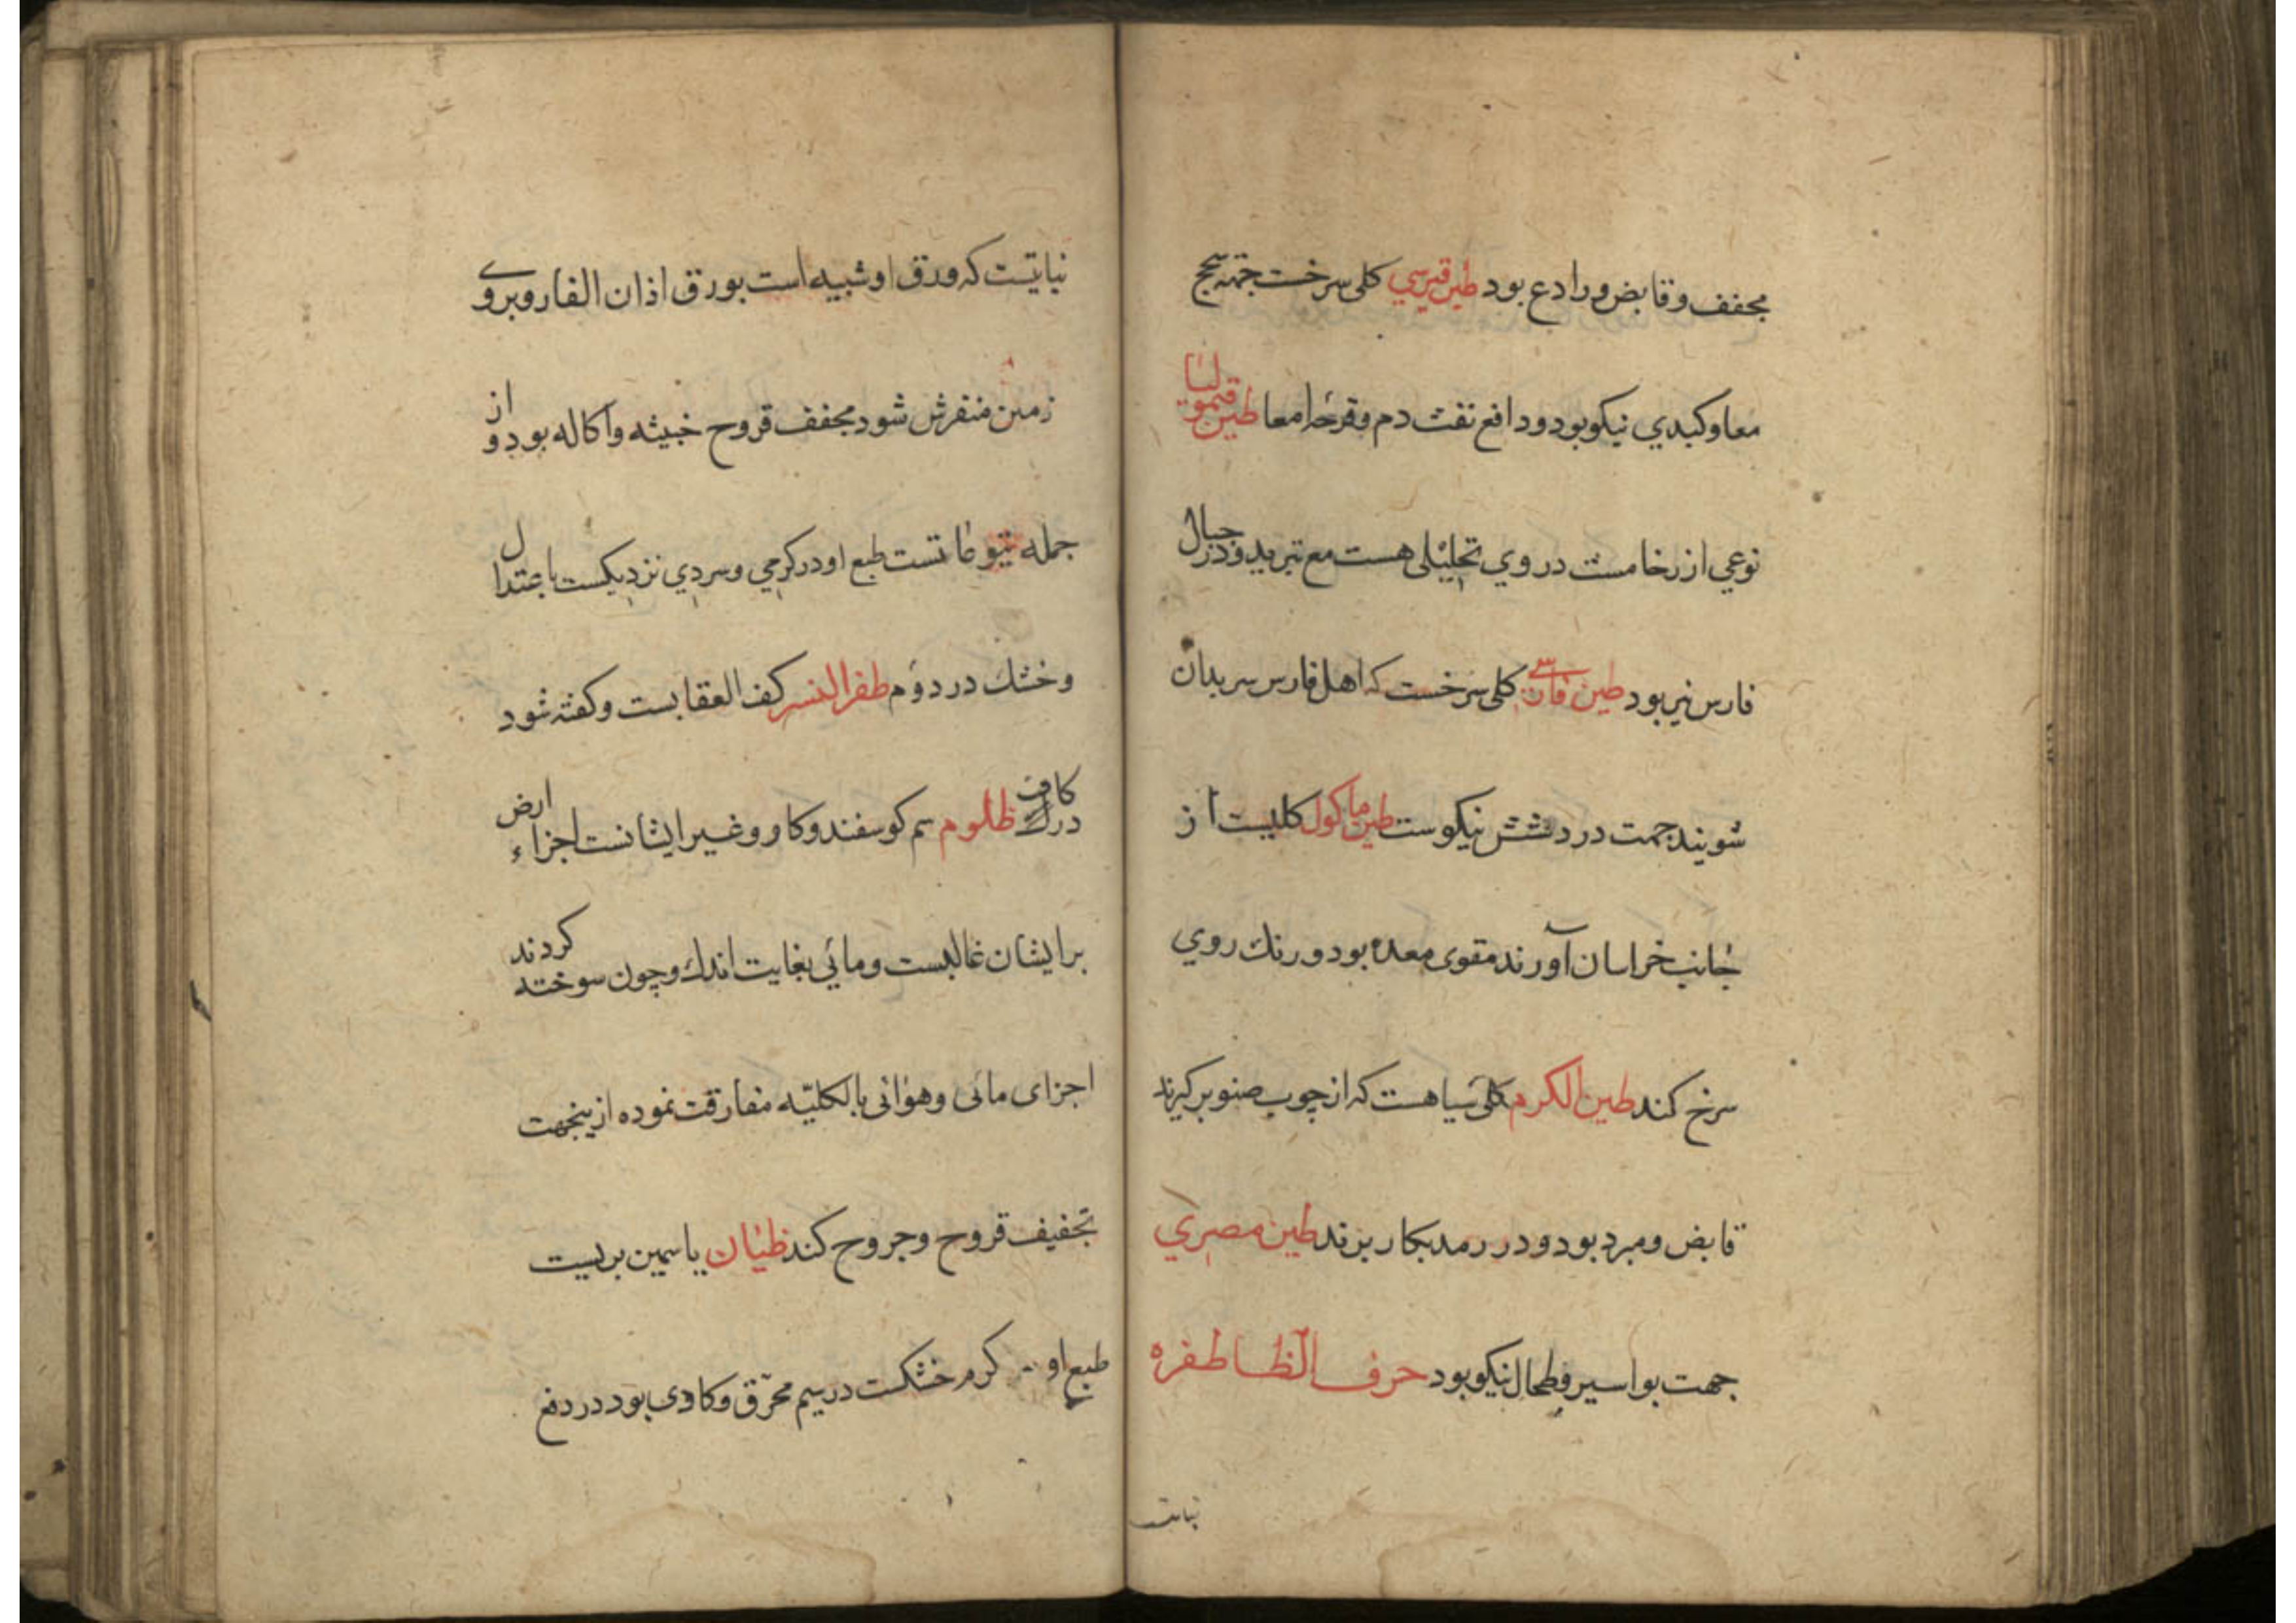 مجفف و قابض و رادع بود طین قبرسي کلی سرخست جهته سحج
معا و کبدي نیکو بود و دافع نفث دم و قرحۀ امعا طین قیمولیا
نوعي از رخامست در وي تحلیلی هست مع تبرید و در جبال
فارس نیز بود طین فارسی کلی سرخست که اهل فارس سر بدان
شویند جهت درد شش نیکوست طین ماکول کلیست از
جانب خراسان آورند مقوی معده بود و رنك روي
سرخ کند طین الکرم کلی سیاهست که از چوب صنوبر کیرند
قابض و مبرد بود و در رمد بکار برند طین مصري
جهت بواسیر و طحال نیکو بود حرف الظا ظفره
نبایتست که ورق او شبیه است بورق اذان الفار و بروی
زمین منفرش شود مجفف قروح خبیثه و آکاله بود و از
جمله یتوعاتست طبع او در کرمي و سردي نزدیکست باعتدال
و خشك در دوم ظفر النسر کف العقابست و کفته شود
در کاف ظلوم سم کوسفند و کاو و غیر ایشانست اجزاء ارض
بر ایشان غالبست و مائي بغایت اندك و چون سوخته کردند
اجزای مائی و هوائی بالکلیّه مفارقت نموده ازینجهت
تجفیف قروح و جروح کند ظیان یاسمین بریست
طبع او کرم خشکست در سیم محرّق و کاوی بود در دفع
نباتیست